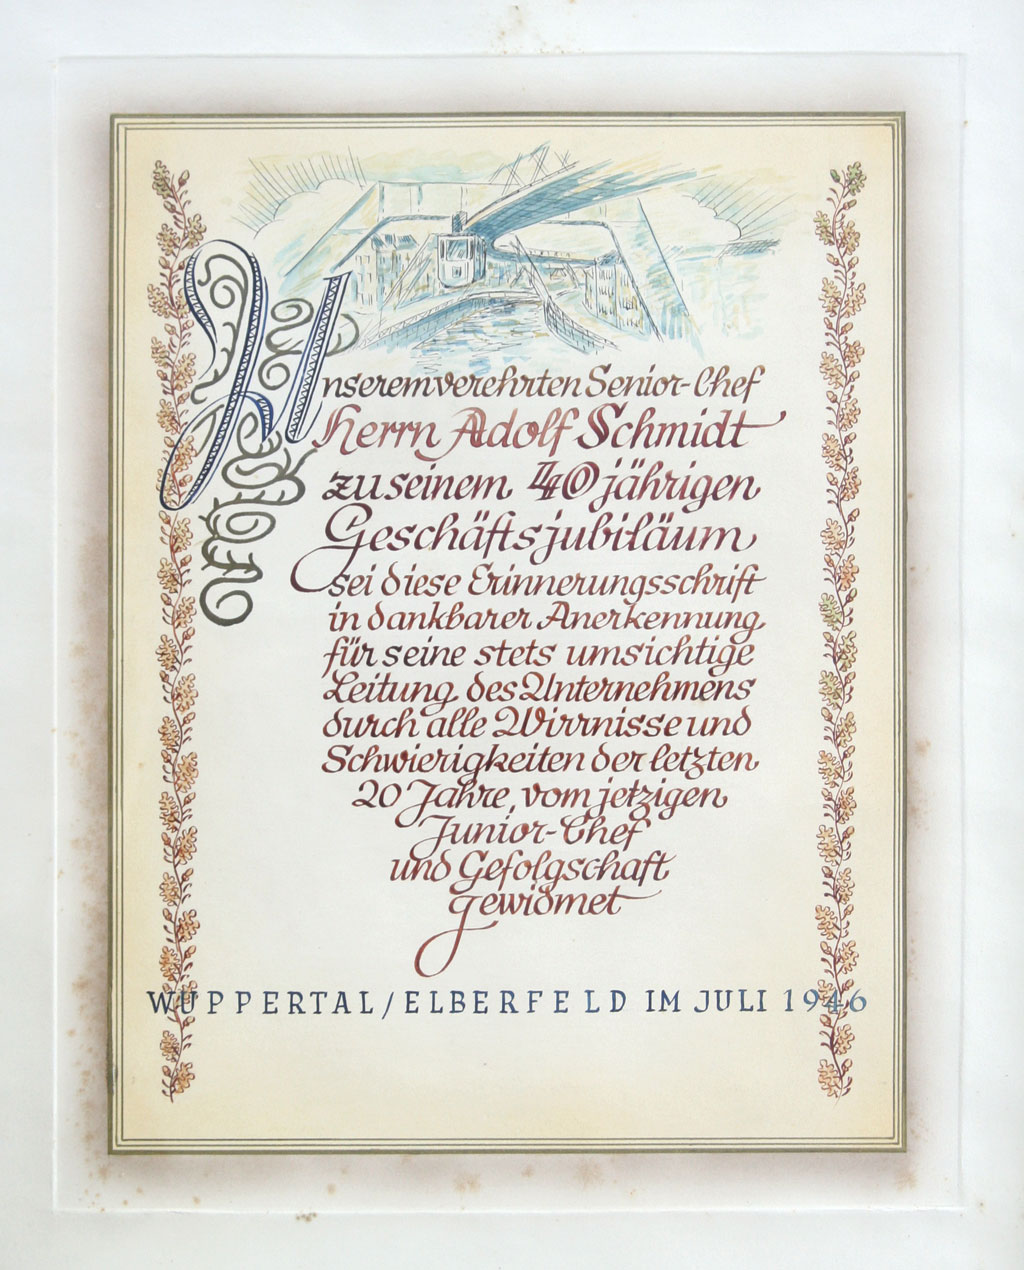 Unserem verehrten Senior-Chef
Herrn Adolf Schmidt
zu seinem 40 jährigen
Geschäftsjubiläum
sei diese Erinnerungsschrift
in dankbarer Anerkennung
für seine stets umsichtige
Leitung des Unternehmens
durch alle Wirrnisse und
Schwierigkeiten der letzten
20 Jahre, vom jetzigen
Junior-Chef
und Gefolgschaft
gewidmet
WUPPERTAL/ELBERFELD IM JULI 1946